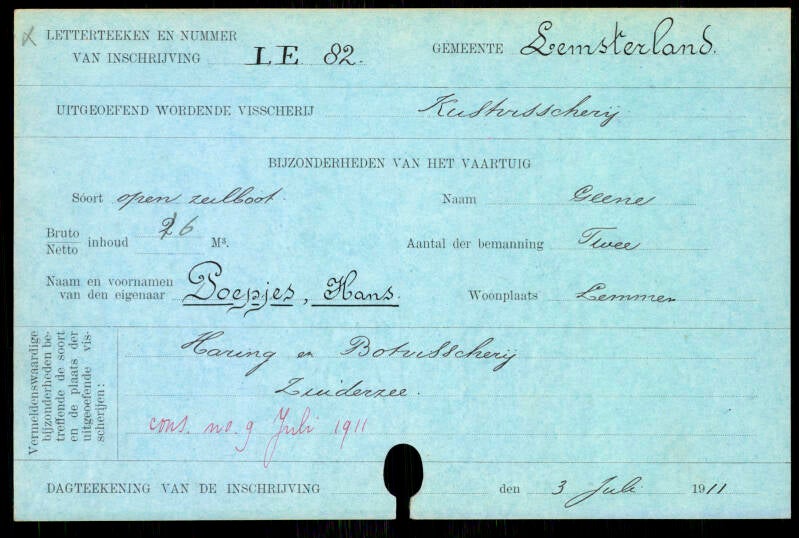 LETTERTEEKEN EN NUMMER
VAN INSCHRIJVING LE 82.
GEMEENTE Lemsterland.
UITGEOEFEND WORDENDE VISSCHERIJ Kustvisscherij
BIJZONDERHEDEN VAN HET VAARTUIG
Soort open zeilboot.
Naam Geene
Bruto
Netto inhoud 26 M³.
Aantal der bemanning Twee
Naam en voornamen
van den eigenaar Poepjes, Hans.
Woonplaats Lemmer
Vermeldenswaardige
bijzonderheden be-
treffende de soort
en de plaats der
uitgeoefende vis-
scherijen:
Haring en Botvisscherij
Zuiderzee.
cons. no. 9 Juli 1911
DAGTEEKENING VAN DE INSCHRIJVING den 3 Juli 1911